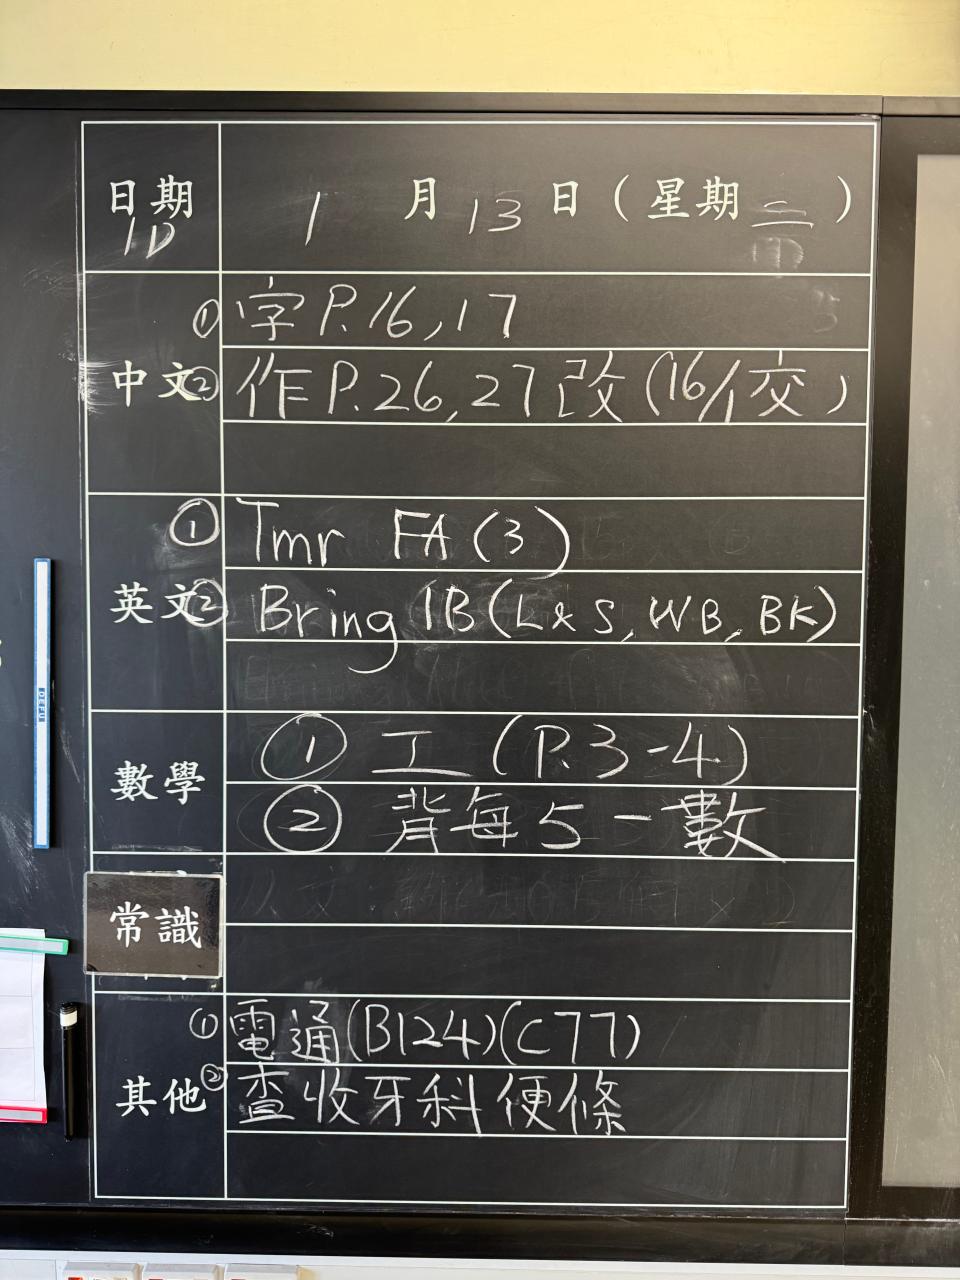 日期 1 月 13 日 (星期 二)
1D
① 字 P.16, 17
中文 ② 作 P.26, 27 改 (16/1 交)
① Tmr FA (3)
英文 ② Bring 1B (L & S, WB, BK)
數學 ① 工 (P.3-4)
② 背每 5 一數
常識
① 電通 (B124) (C77)
其他 ② 查收牙科便條
DELI